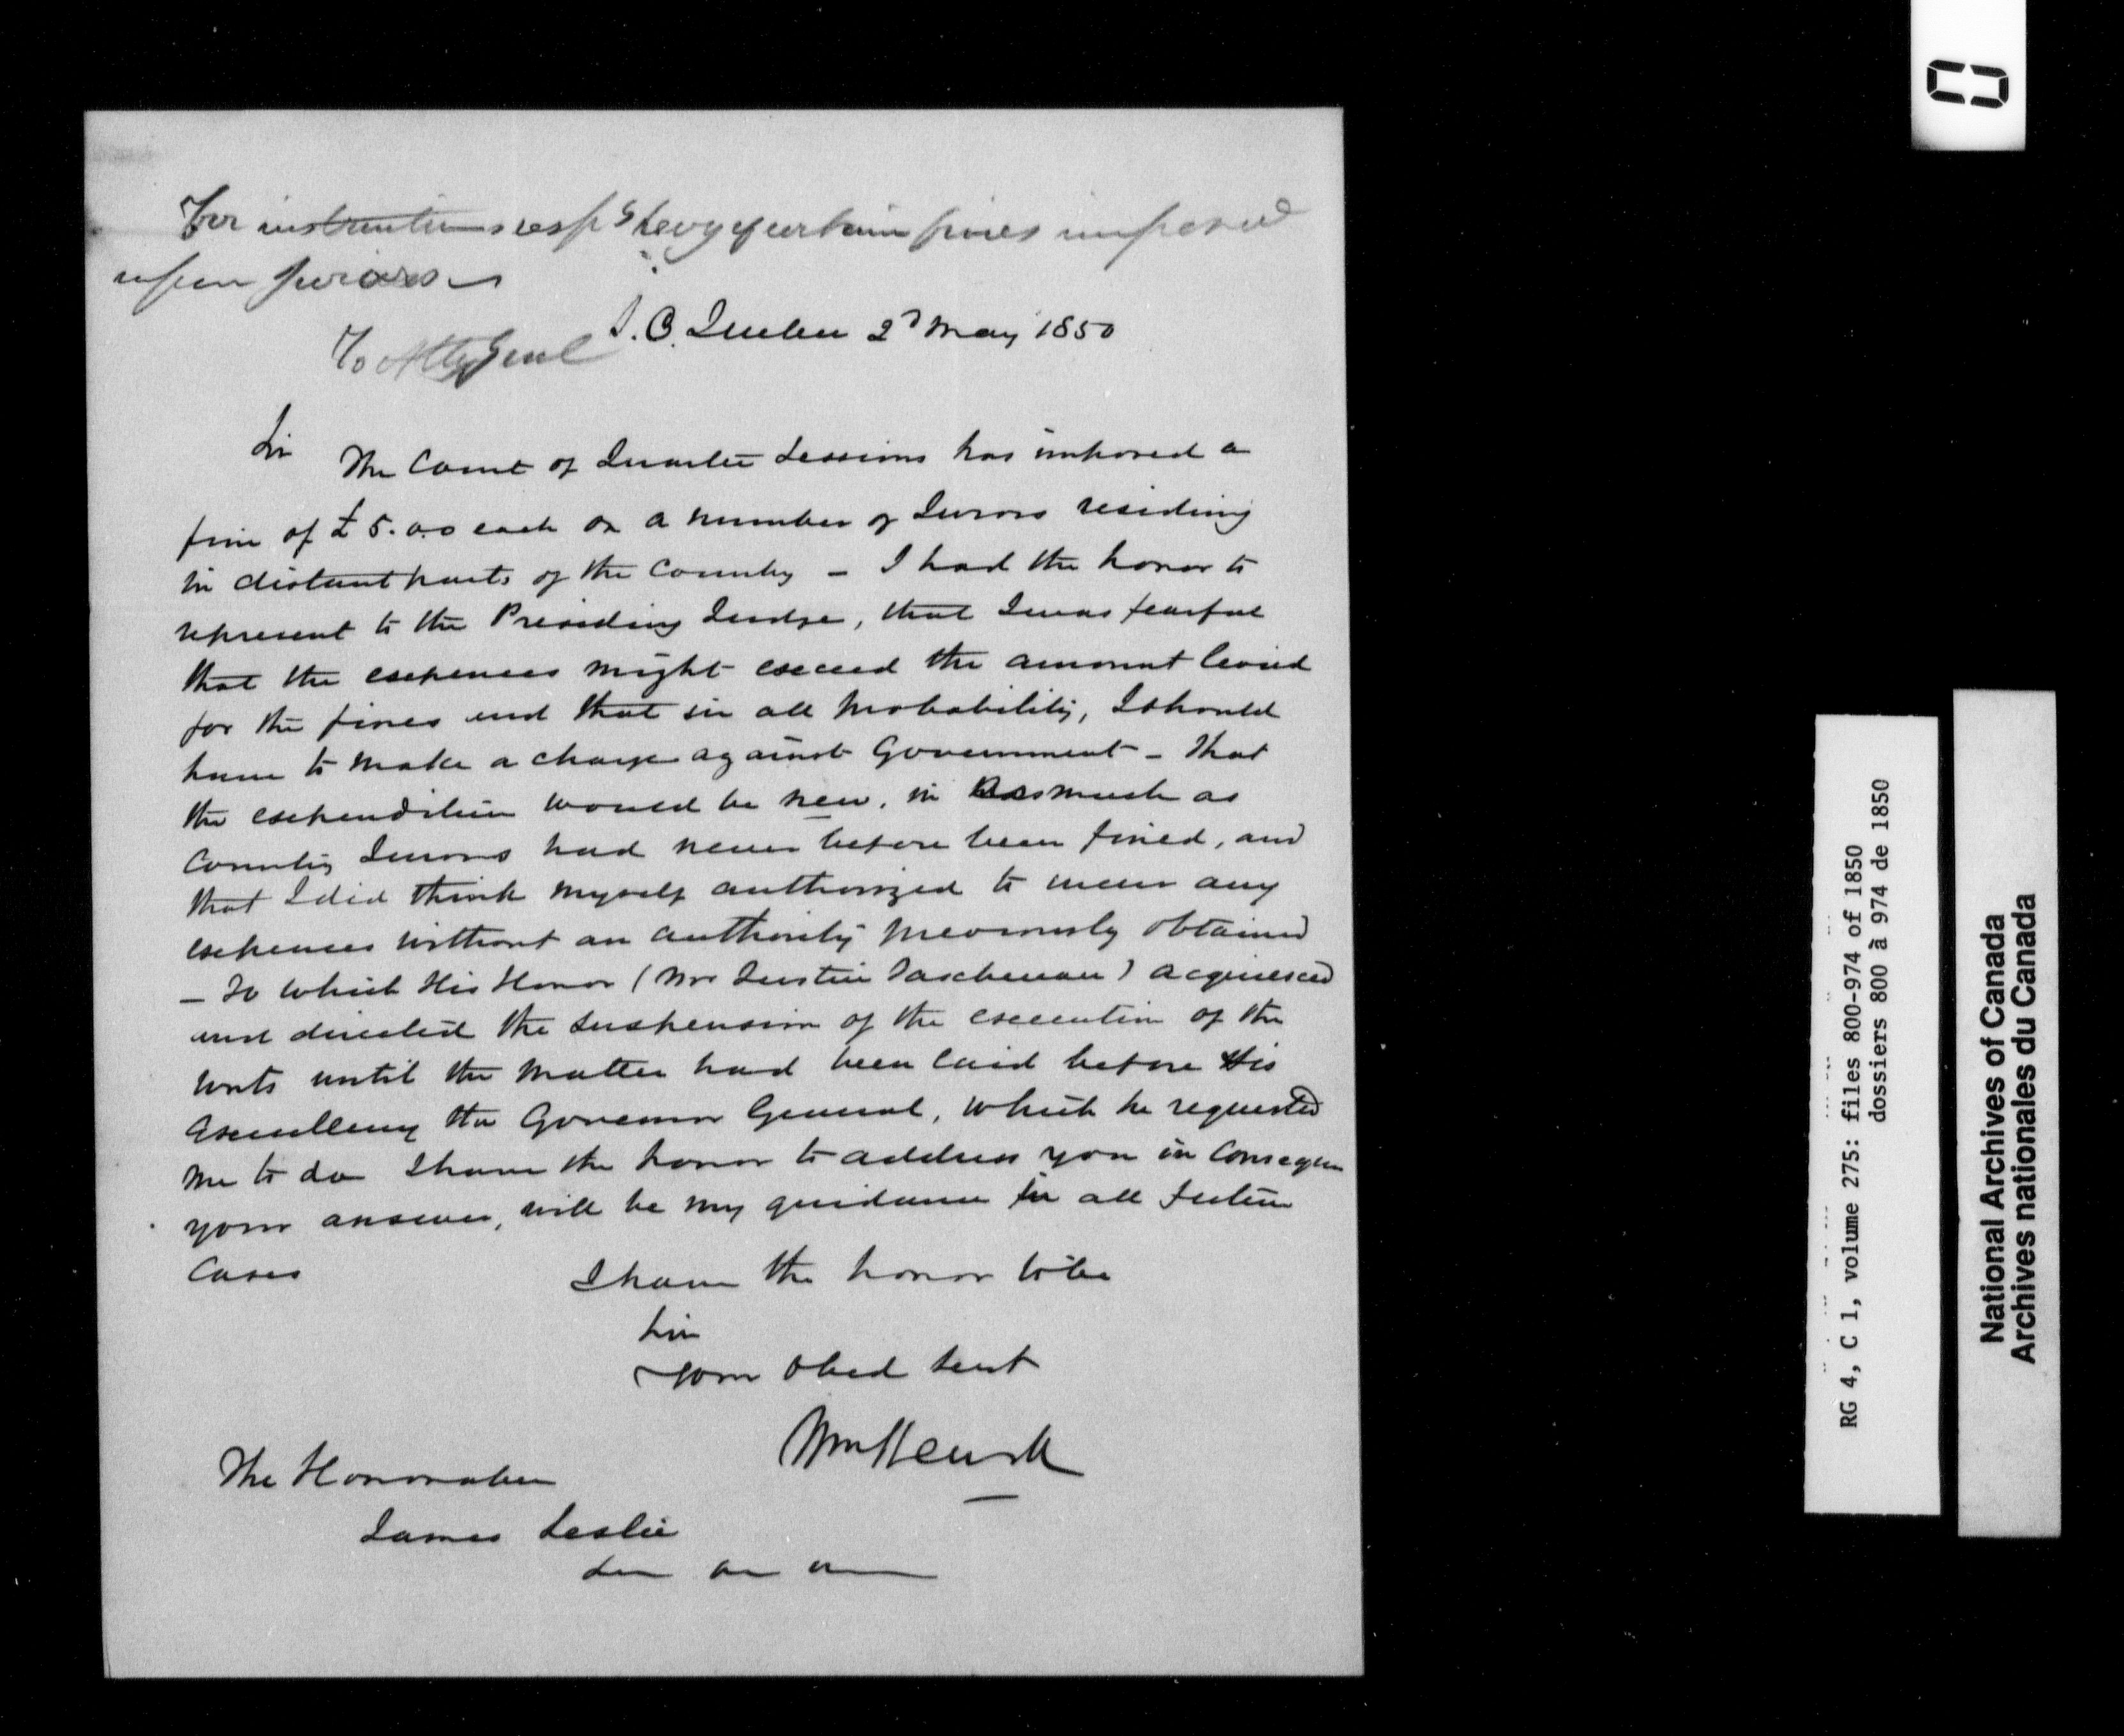 For instructions resp.g levy of certain fines imposed
upon jurors
S. O. Quebec 2d May 1850
To Atty Genl
Sir The Court of Quarter Sessions has imposed a
fine of £5.0.0 each on a number of Jurors residing
in distant parts of the Country - I had the honor to
represent to the Presiding Judge, that I was fearful
that the expenses might exceed the amount levied
for the fines and that in all probability, I should
have to make a charge against Government - That
the expenditure would be new, in asmuch as
Country Jurors had never before been fined, and
that I did think myself authorized to incur any
expenses without an authority previously obtained
- To which His Honor (Mr Justice Taschereau) acquiesced
and directed the suspension of the execution of the
writs until the matter had been laid before His
Excellency the Governor General, which he requested
me to do I have the honor to address you in Consequen
your answer, will be my guidance in all future
Cases
I have the honor to be
Sir
Your Obed Servt
The Honorable
James Leslie
RG 4, C 1, volume 275: files 800-974 of 1850
dossiers 800 à 974 de 1850
National Archives of Canada
Archives nationales du Canada